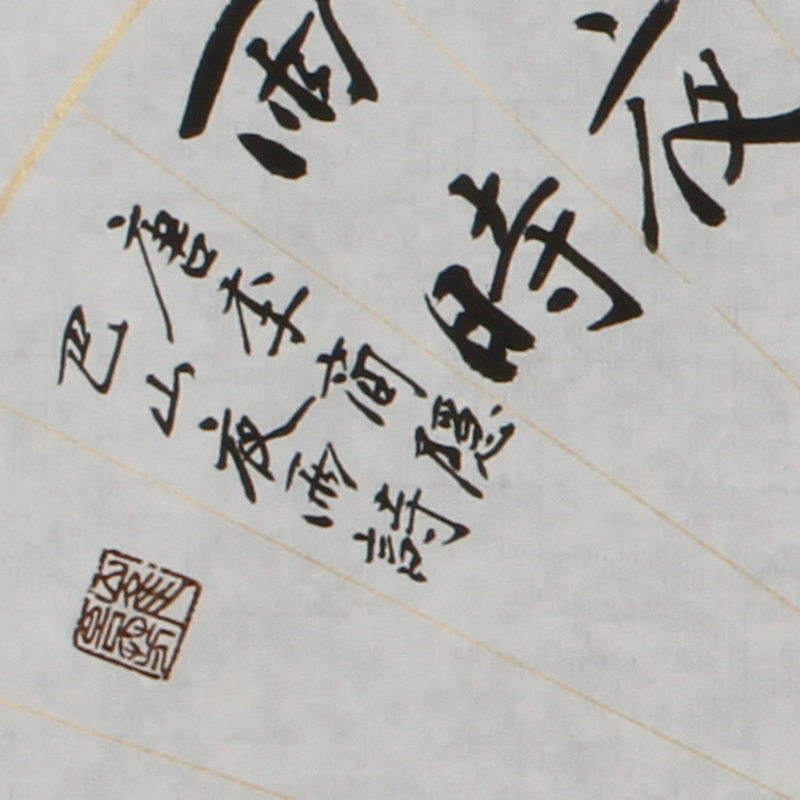 夜
雨時
唐李商隱
巴山夜雨詩